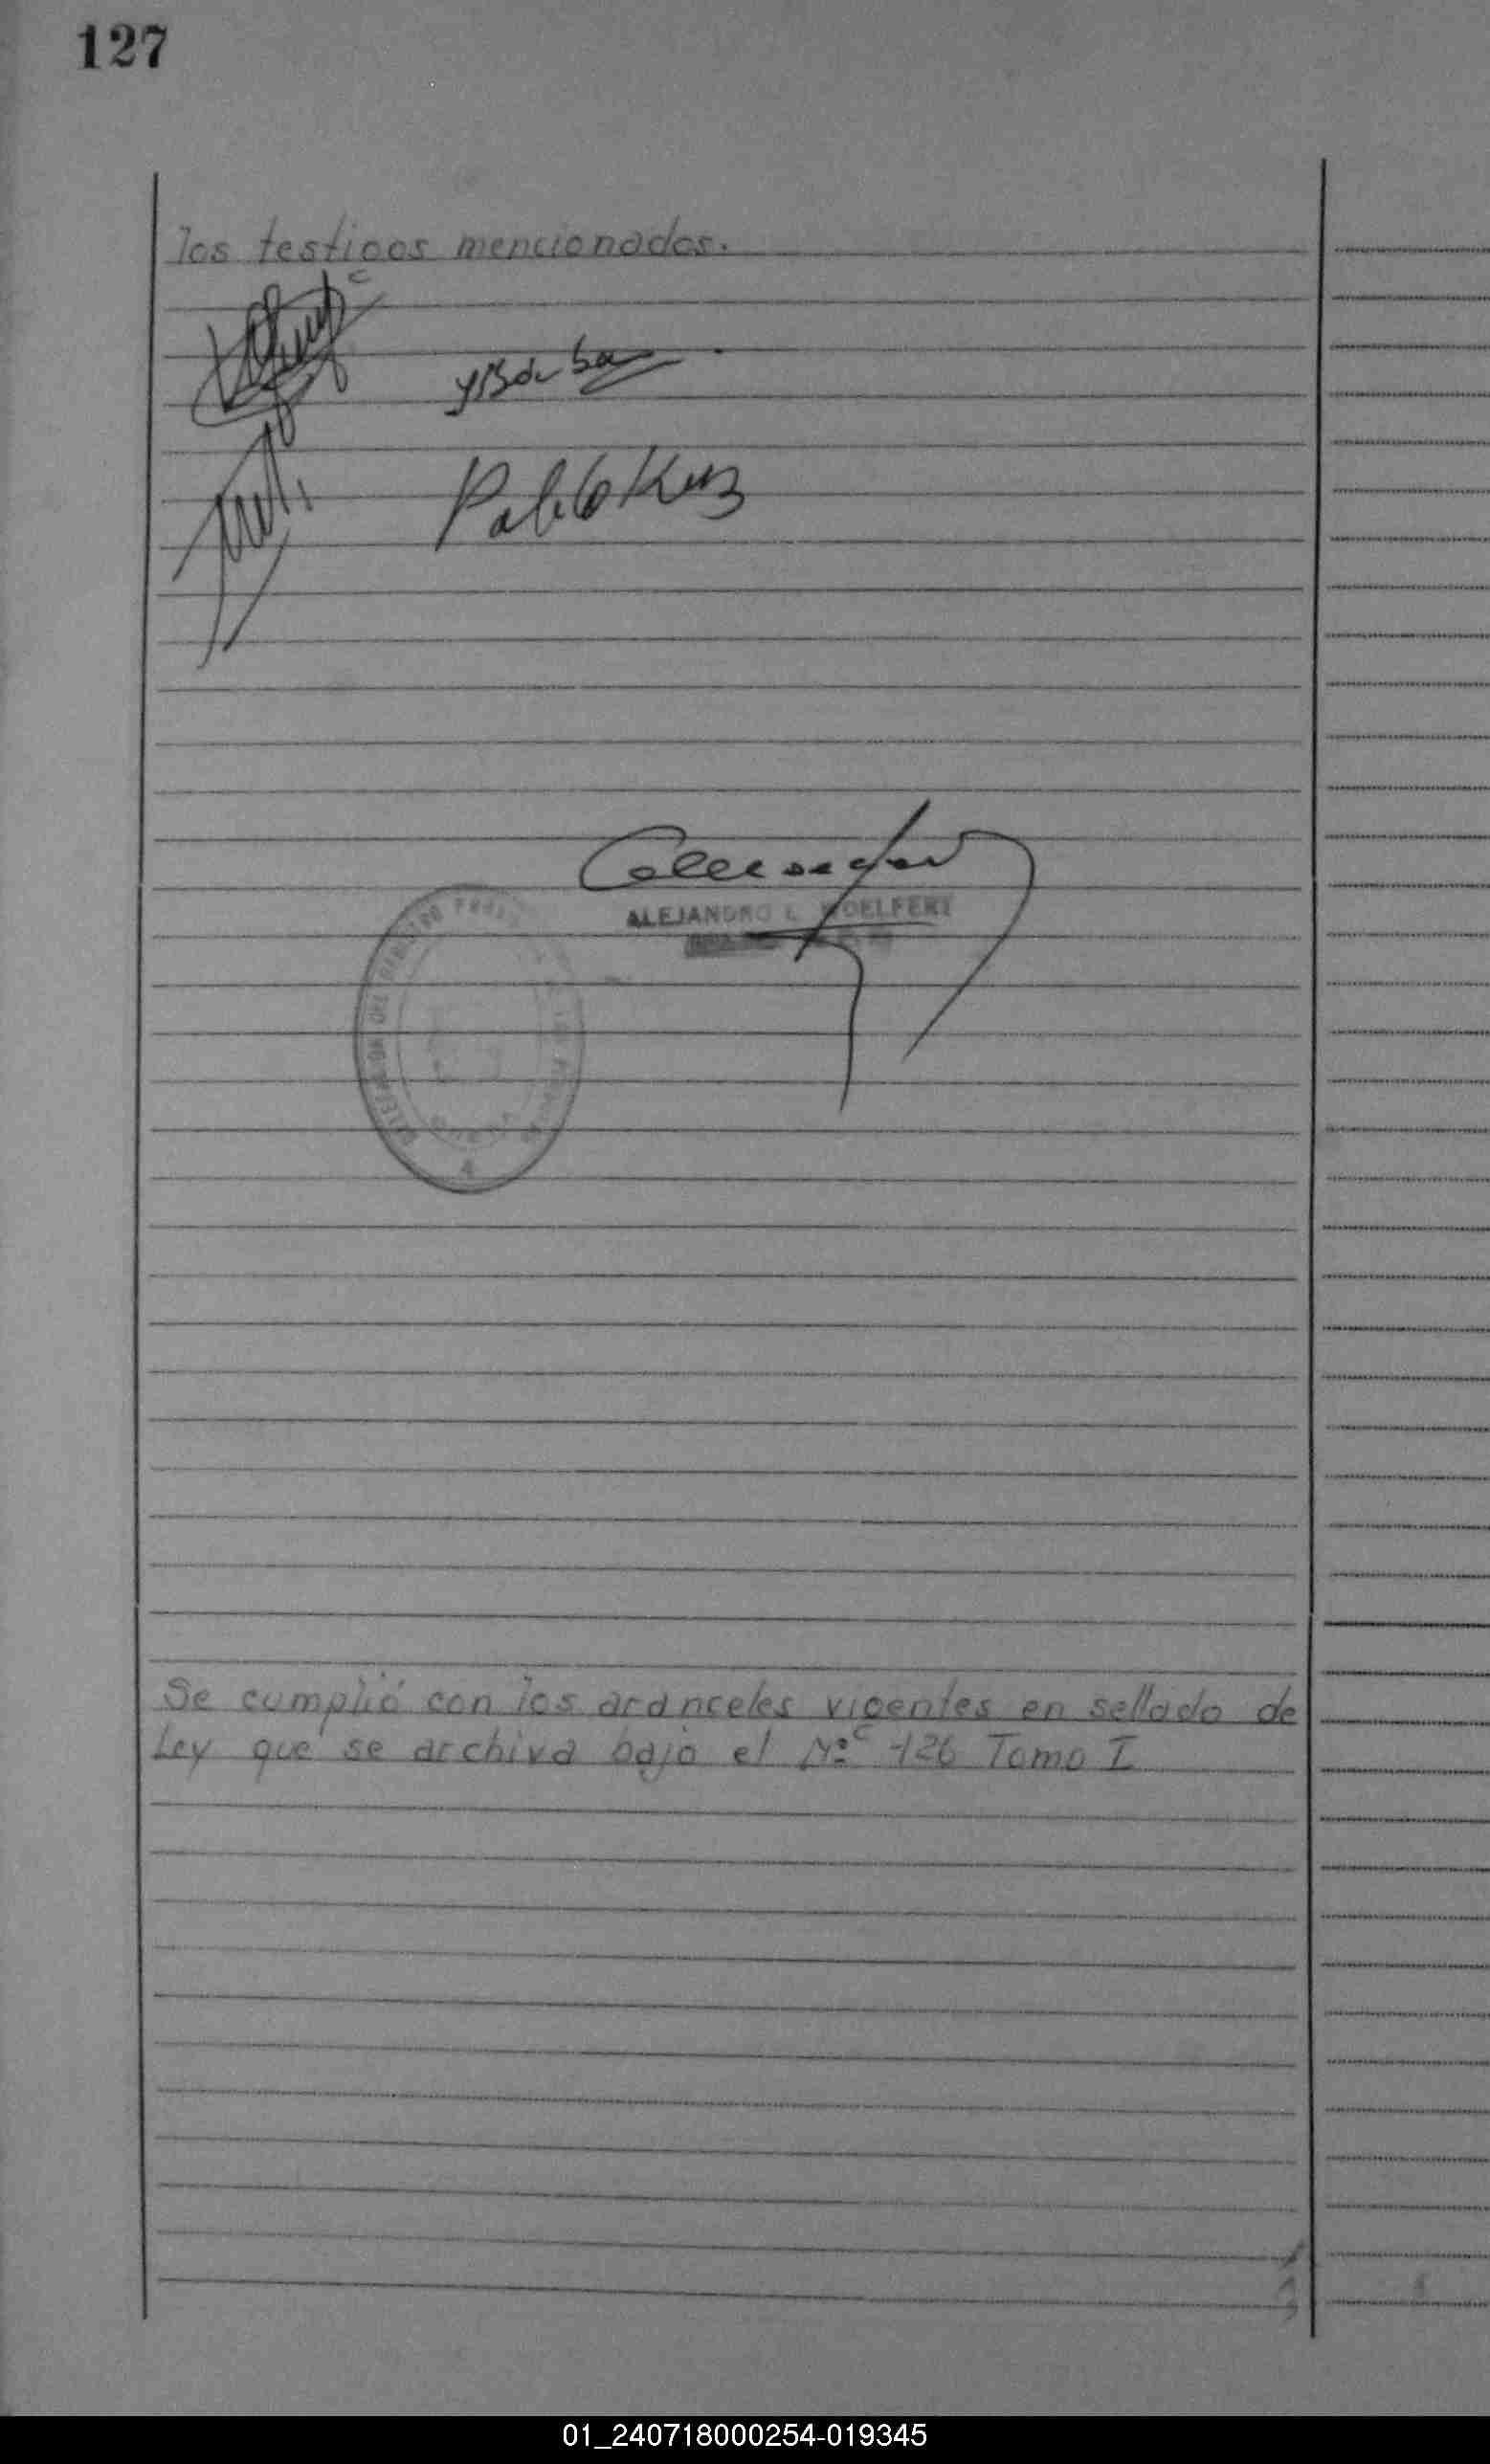 127
los testigos mencionados.
Pablo Kuz
ALEJANDRO L. WOELFERT
DEL REGISTRO
Se cumplió con los aranceles vigentes en sellado de
Ley que se archiva bajo el Nº 126 Tomo I
01_240718000254-019345